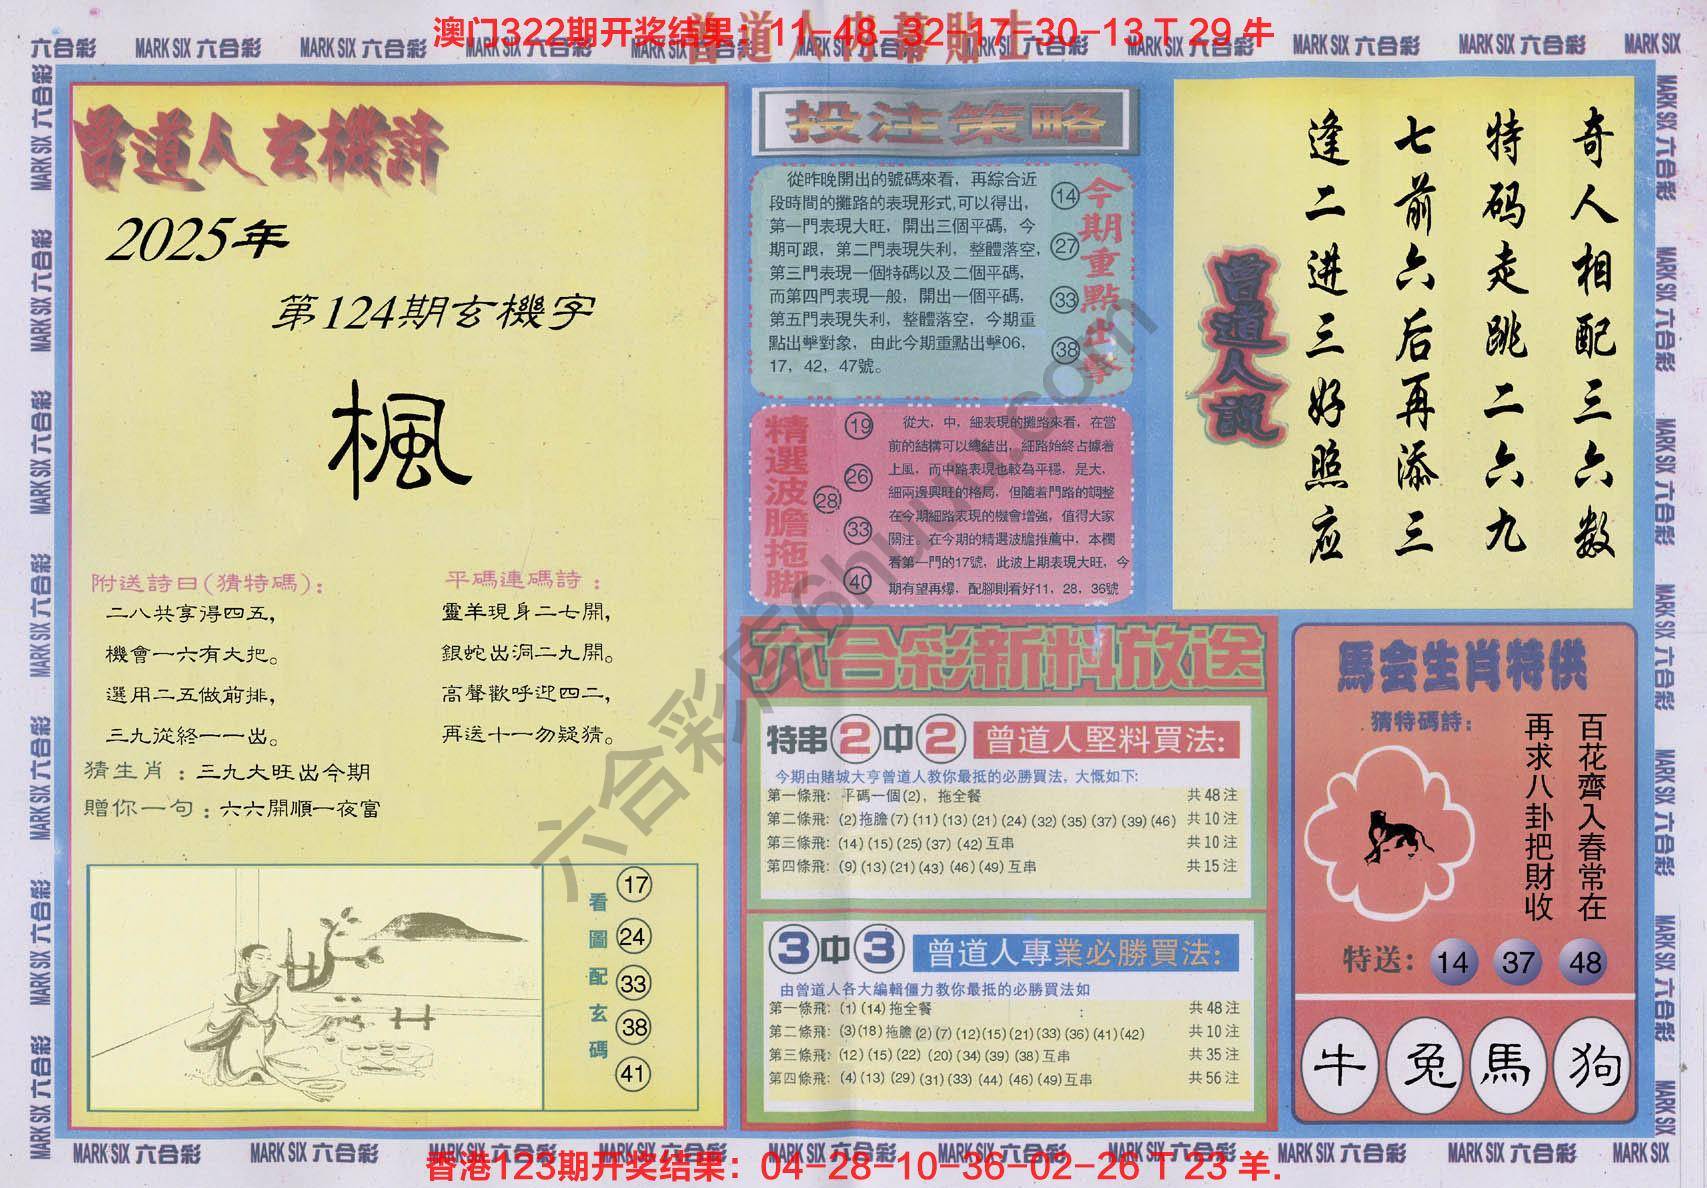 澳门322期开奖结果：11-48-32-17-30-13 T 29 牛
曾道人內幕貼士
六合彩 MARK SIX 六合彩 MARK SIX 六合彩 MARK SIX 六合彩 MARK SIX 六合彩 MARK SIX
曾道人玄機詩
2025年
第124期玄機字
楓
附送詩曰(猜特碼)：
二八共享得四五，
機會一六有大把。
選用二五做前排，
三九從終一一出。
平碼連碼詩：
靈羊現身二七開，
銀蛇出洞二九開。
高聲歡呼迎四二，
再送十一勿疑猜。
猜生肖：三九大旺出今期
贈你一句：六六開順一夜富
看圖配玄碼
17
24
33
38
41
投注策略
從昨晚開出的號碼來看，再綜合近
段時間的攤路的表現形式,可以得出，
第一門表現大旺，開出三個平碼，今
期可跟，第二門表現失利，整體落空，
第三門表現一個特碼以及二個平碼，
而第四門表現一般，開出一個平碼，
第五門表現失利，整體落空，今期重
點出擊對象，由此今期重點出擊06，
17，42，47號。
14
27
33
38
今期重點出擊
精選波膽拖脚
19
26
28
33
40
從大，中，細表現的攤路來看，在當
前的結構可以總結出，細路始終占據着
上風，而中路表現也較為平穩，是大，
細兩邊興旺的格局，但隨着門路的調整
在今期細路表現的機會增強，值得大家
關注。在今期的精選波膽推薦中，本欄
看第一門的17號，此波上期表現大旺，今
期有望再爆，配腳則看好11，28，36號
奇人相配三六数
特码走跳二六九
七前六后再添三
逢二进三好照应
曾道人說
六合彩新料放送
特串2中2 曾道人堅料買法:
今期由賭城大亨曾道人教你最抵的必勝買法，大慨如下:
第一條飛: 平碼一個(2)，拖全餐 共48注
第二條飛: (2)拖膽(7)(11)(13)(21)(24)(32)(35)(37)(39)(46) 共10注
第三條飛: (14)(15)(25)(37)(42)互串 共10注
第四條飛: (9)(13)(21)(43)(46)(49)互串 共15注
3中3 曾道人專業必勝買法:
由曾道人各大編輯僵力教你最抵的必勝買法如
第一條飛: (1)(14)拖全餐 : 共48注
第二條飛: (3)(18)拖膽(2)(7)(12)(15)(21)(33)(36)(41)(42) 共10注
第三條飛: (12)(15)(22)(20)(34)(39)(38)互串 共35注
第四條飛: (4)(13)(29)(31)(33)(44)(46)(49)互串 共56注
馬会生肖特供
猜特碼詩：
百花齊入春常在
再求八卦把財收
特送： 14 37 48
牛 兔 馬 狗
六合彩库6huuu.com
MARK SIX 六合彩 MARK SIX 六合彩 MARK SIX 六合彩 MARK SIX 六合彩 MARK SIX 六合彩 MARK SIX 六合彩 MARK SIX 六合彩 MARK SIX 六合彩 MARK SIX 六合彩 MARK SIX
香港123期开奖结果：04-28-10-36-02-26 T 23 羊.